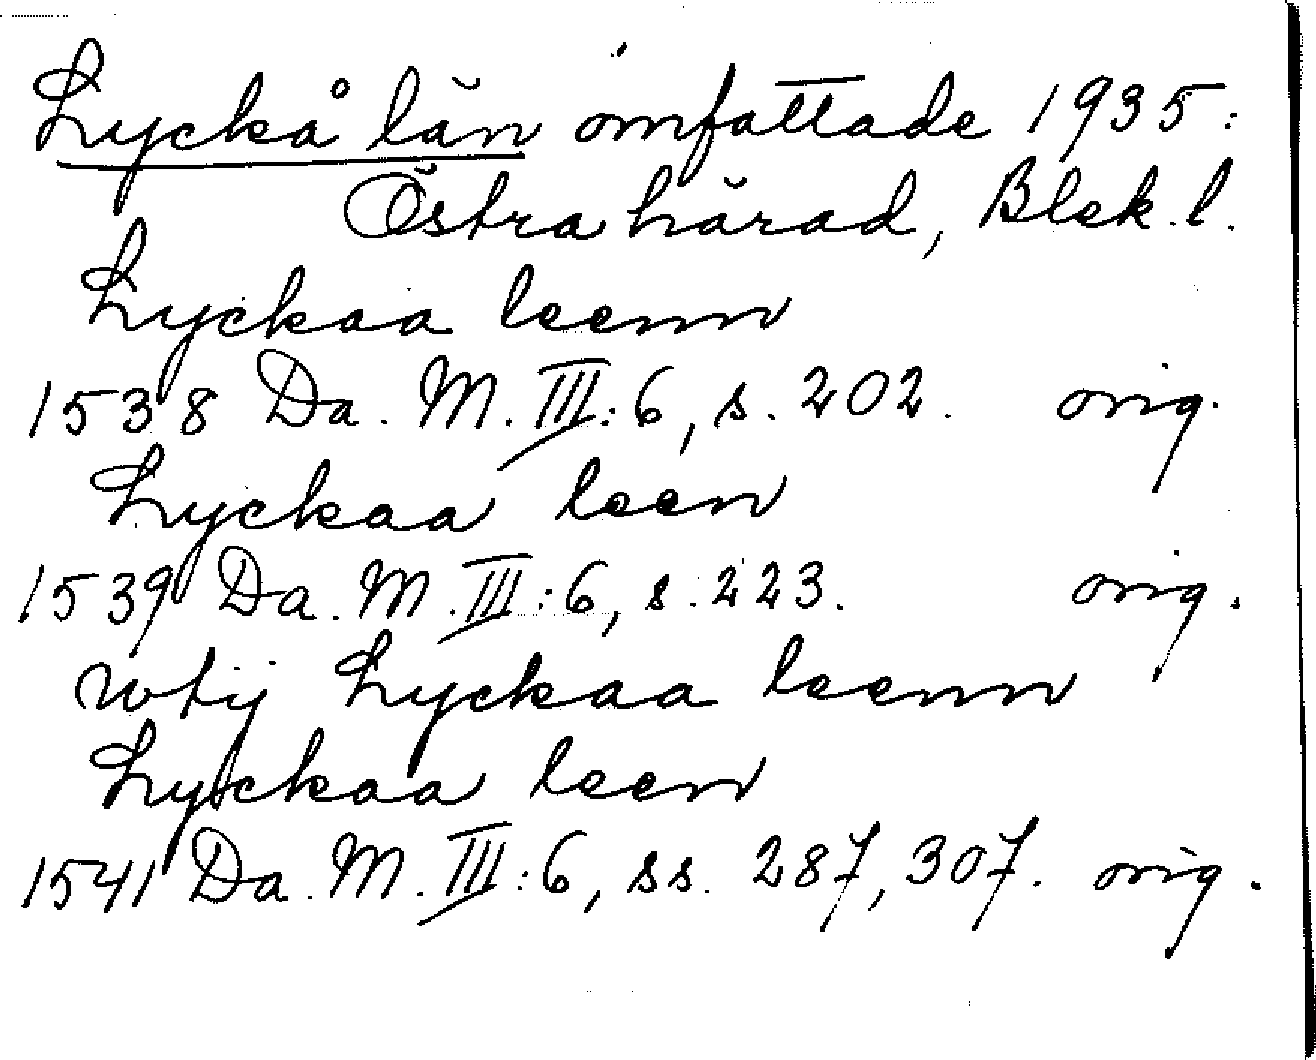 Lyckå län omfattade 1935:
Östra härad, Blek. l.
Lyckaa leenn
1538 Da. M. III:6, s. 202. orig.
Lyckaa leen
1539 Da. M. III:6, s. 223. orig.
wtij Lyckaa leenn
Lyckaa leen
1541 Da. M. III:6, ss. 287, 307. orig.